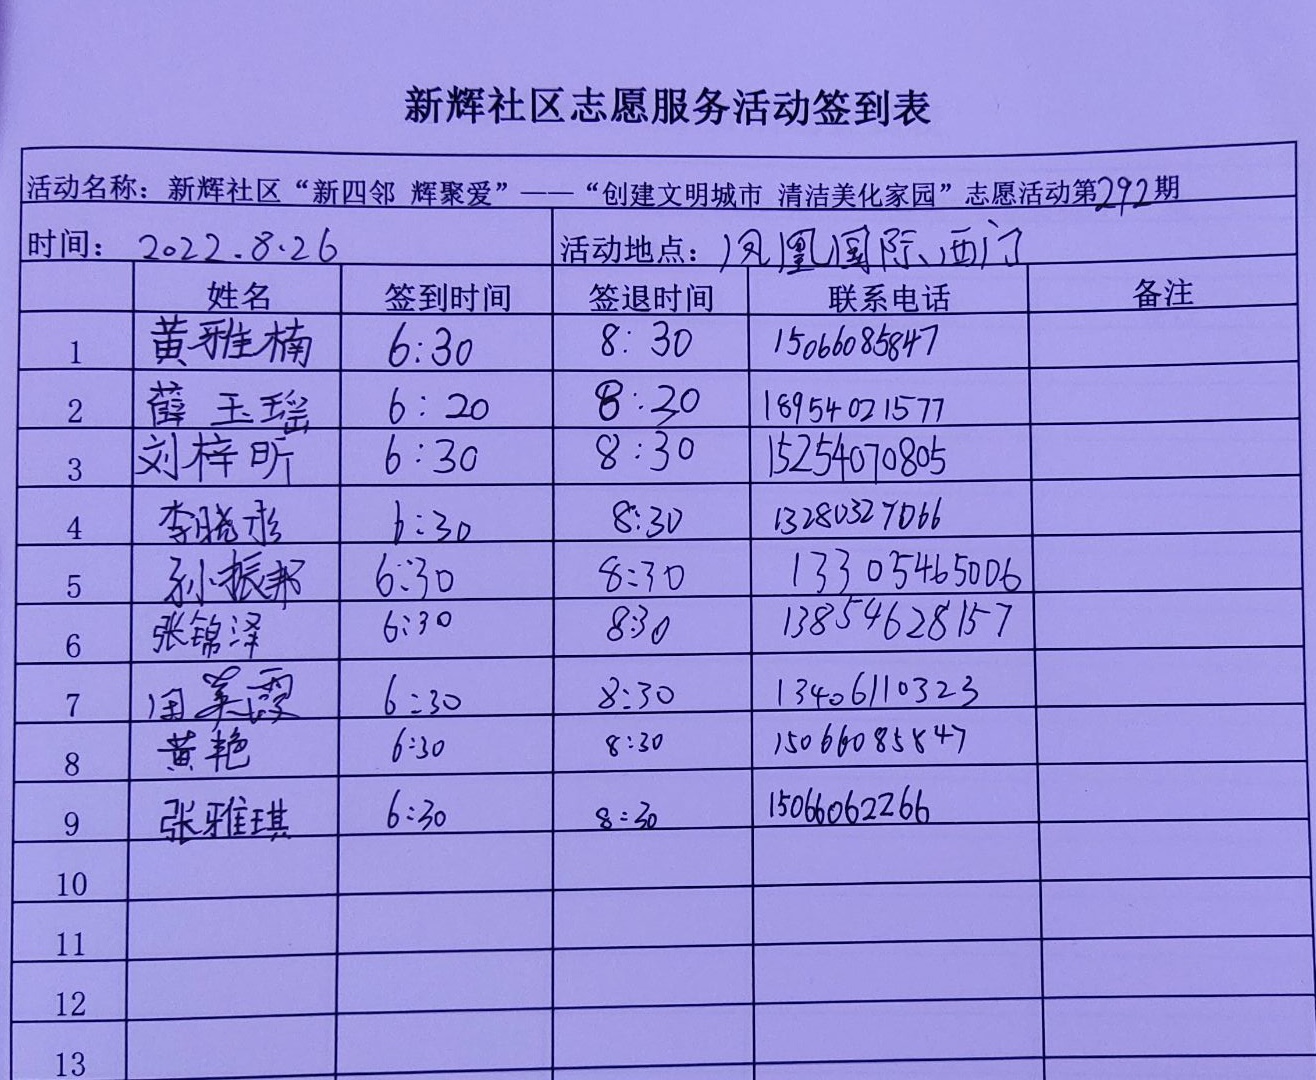 新辉社区志愿服务活动签到表
活动名称：新辉社区“新四邻 辉聚爱”——“创建文明城市 清洁美化家园”志愿活动第292期
时间：2022.8.26 活动地点：凤凰国际西门
姓名 签到时间 签退时间 联系电话 备注
1 黄雅楠 6:30 8:30 15066085847
2 薛玉瑶 6:20 8:30 18954021577
3 刘梓昕 6:30 8:30 15254070805
4 李晓彤 6:30 8:30 13280327066
5 孙振邦 6:30 8:30 13305465006
6 张锦泽 6:30 8:30 13854628157
7 英霞 6:30 8:30 13406110323
8 黄艳 6:30 8:30 15066085847
9 张雅琪 6:30 8:30 15066062266
10
11
12
13